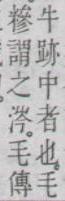 牛跡中者也。毛
謂之涔。毛傳